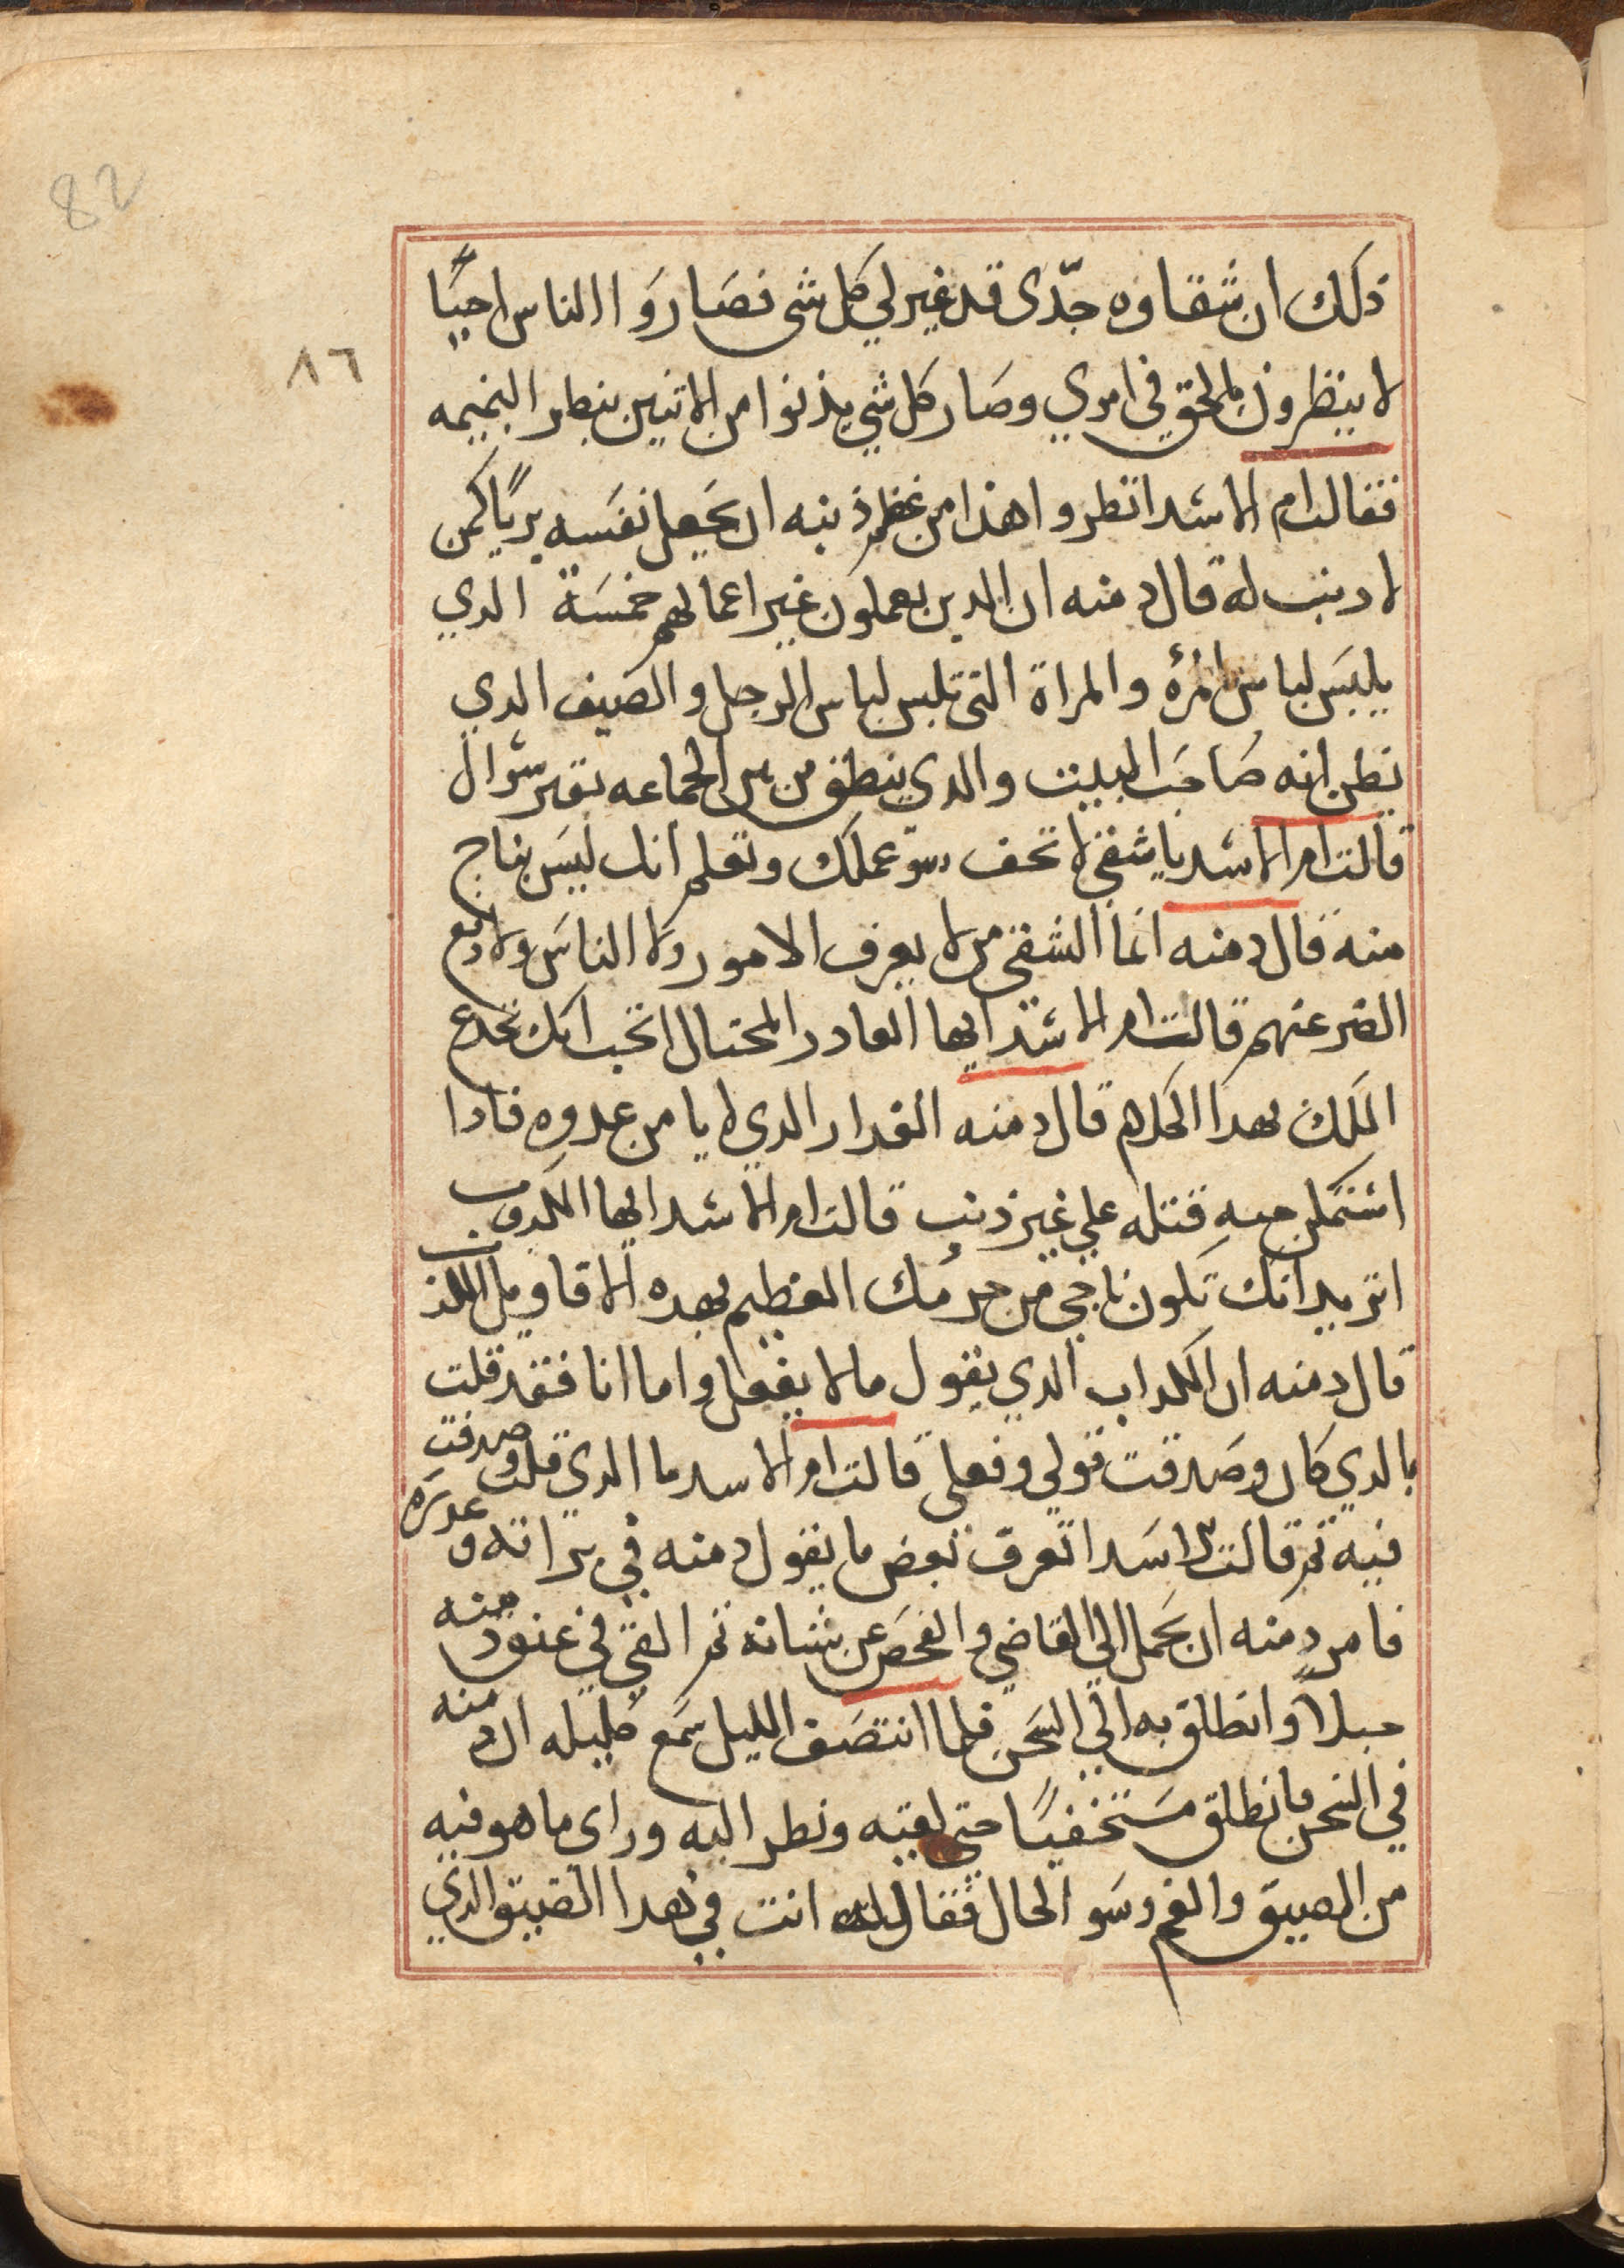 82
٨٦
ذلك ان شقاوه جدّى قد غير لي كل شى فصاروا الناس احيًا
لا ينظرون بالحق في امري وصار كل شي يدنوا من الاثنين ينطر النميمه
فقالت ام الاسد انظروا هذا من عظم ذنبه ان يجعل نفسه بريًا كمن
لا دنب له قال دمنه ان الدين يعملون غير اعمالهم خمسة الدي
يلبس لباس المرٔه والمراة التى تلبس لباس الرجل والضيف الدي
يظن انه صاحب البيت والدي ينطق من بين الجماعه بغير سوال
قالت ام الاسد يا شقي لا تخف سو عملك وتعلم انك ليس بناج
منه قال دمنه انما الشقي من لا يعرف الامور ولا الناس ولا دفع
الضر عنهم قالت ام الاسد ايها الغادر المحتال اتحب انك تخدع
الملك بهدا الكلام قال دمنه الغدار الدي لا يامن عدوه فادا
استمكن منه قتله علي غير ذنب قالت ام الاسد ايها الكدوب
اتريد انك تكون ناجي من جرمك العظيم بهده الاقاويل الكذب
قال دمنه ان الكداب الدي يقول مالا يفعل واما انا فقد قلت
بالدي كان وصدقت قولي وفعلى قالت ام الاسد ما الدي قلت وصدقت
فيه ثم قالت لاسدا تعرف بعض ما يقول دمنه في براته وعدره
فامر دمنه ان يحمل الي القاضي والفحص عن شانه ثم القي في عنق دمنه
حبلا وانطلق به الي السجن فلما انتصف الليل سمع كليله ان دمنه
في السجن فانطلق مستخفيًا حتى لقيه ونطر اليه وراى ما هو فيه
من الضيق والغم وسو الحال فقال له انت في هدا الضيق الدي